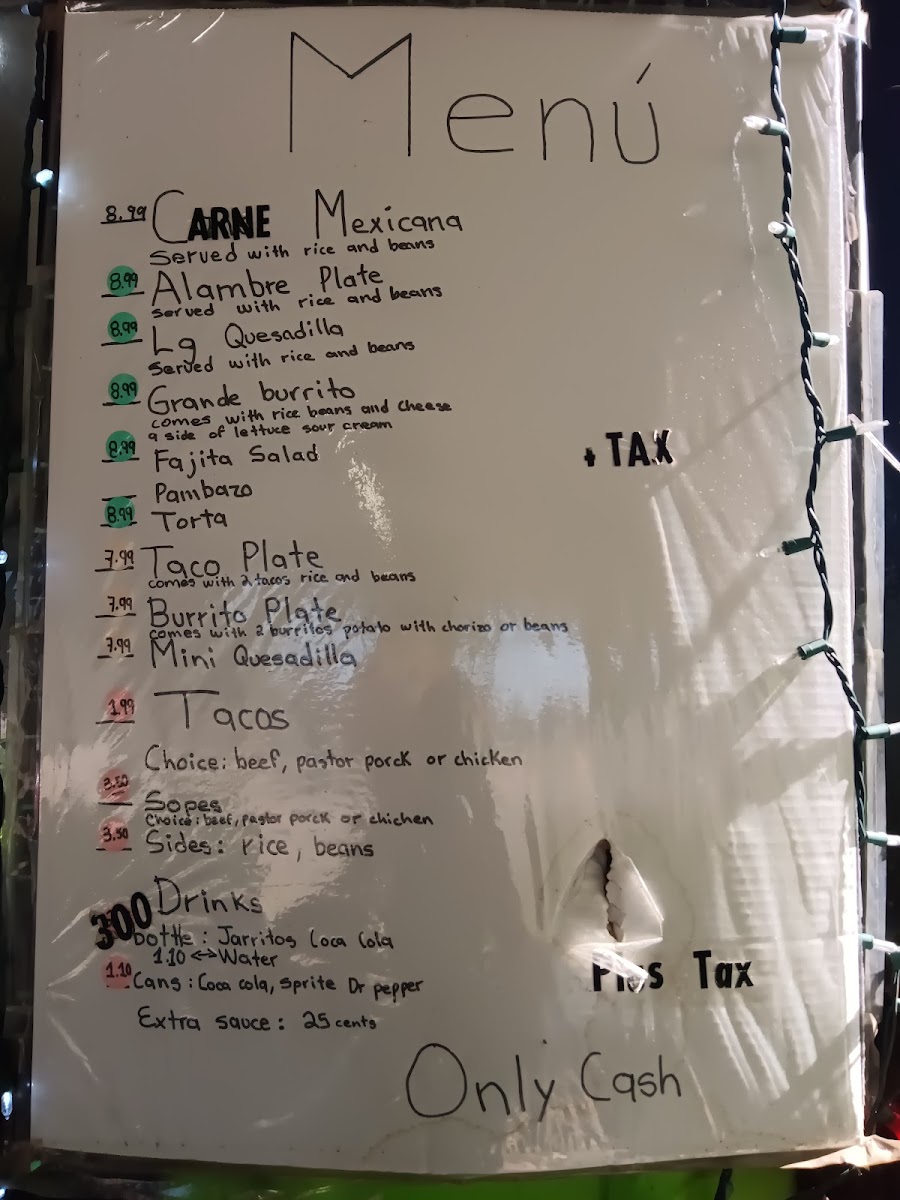 Menú
8.99 CARNE Mexicana
Served with rice and beans
8.99 Alambre Plate
served with rice and beans
8.99 Lg Quesadilla
Served with rice and beans
8.99 Grande burrito
comes with rice beans and cheese
a side of lettuce sour cream
8.99 Fajita Salad
+ TAX
Pambazo
8.99 Torta
7.99 Taco Plate
comes with 2 tacos rice and beans
7.99 Burrito Plate
comes with 2 burritos potato with chorizo or beans
7.99 Mini Quesadilla
1.99 Tacos
Choice: beef, pastor porck or chicken
Sopes
Choice: beef, pastor porck or chichen
3.50 Sides: rice, beans
300 Drinks
bottle: Jarritos Coca Cola
1.10 ↔ Water
1.10 Cans: Coca cola, sprite Dr pepper
Plus Tax
Extra sauce: 25 cents
Only Cash